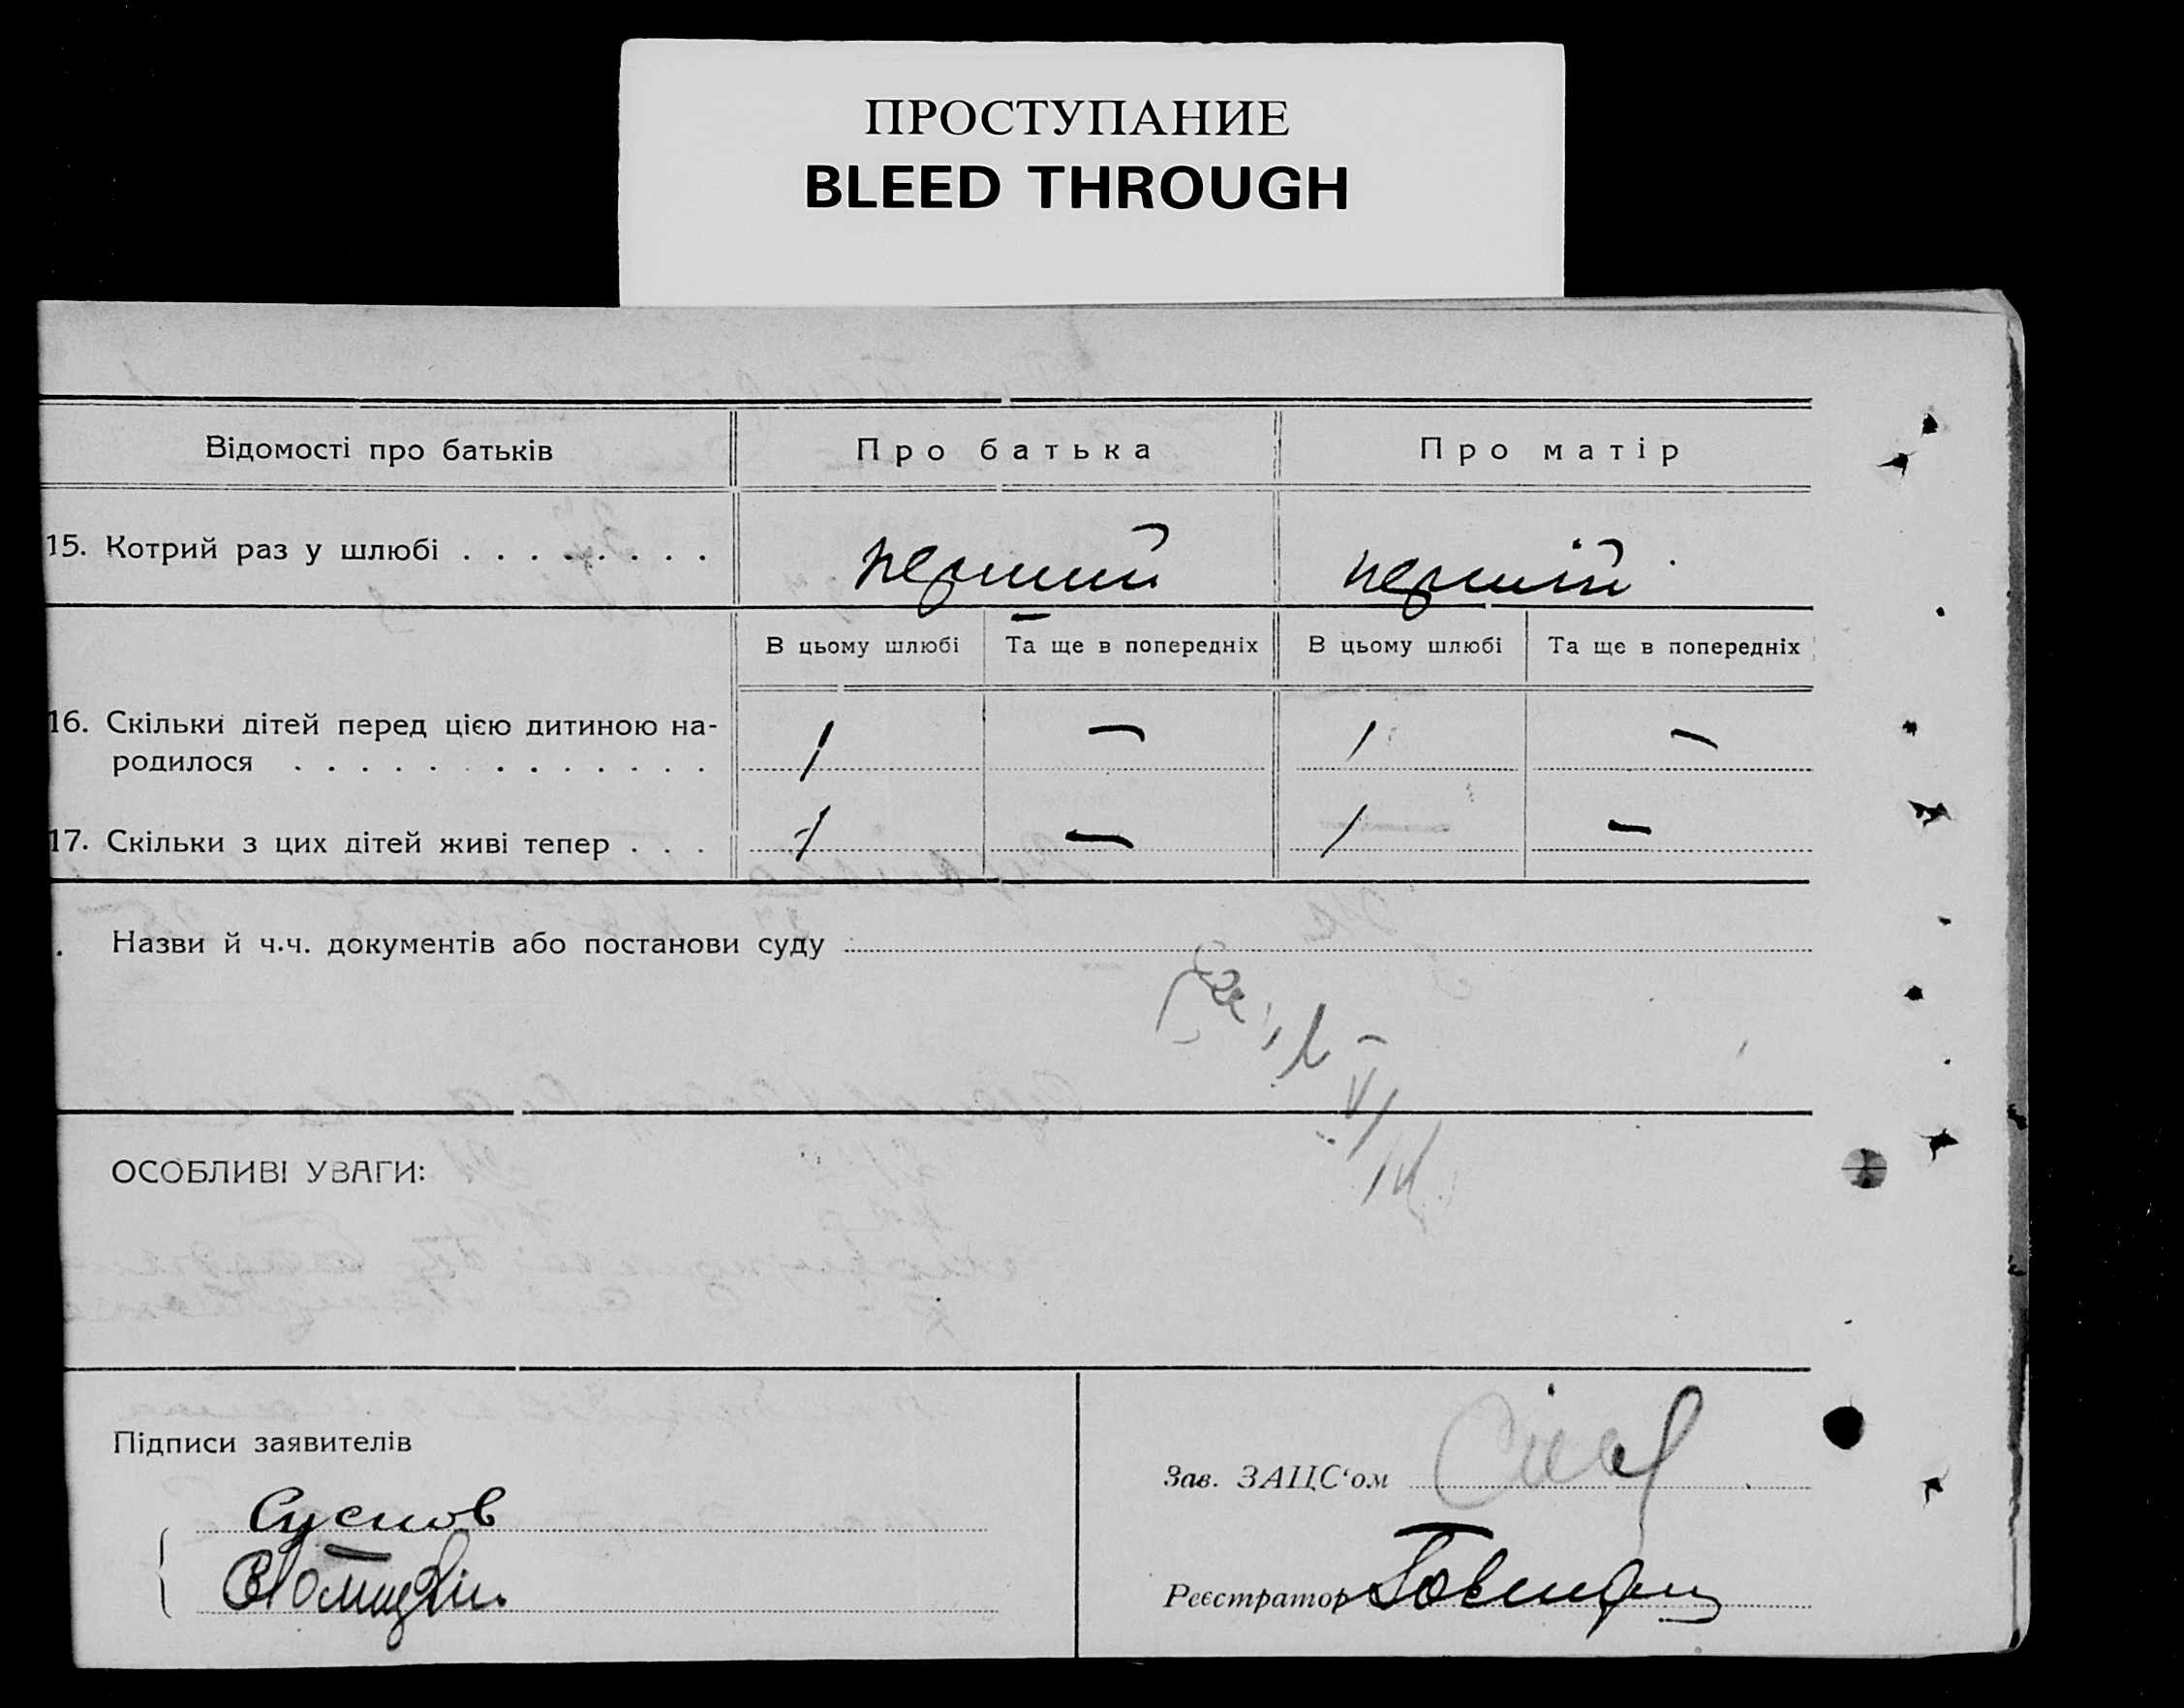 ПРОСТУПАНИЕ
BLEED THROUGH
Відомості про батьків
Про батька
Про матір
15. Котрий раз у шлюбі . . . . . . . .
перший
перший
В цьому шлюбі
Та ще в попередніх
В цьому шлюбі
Та ще в попередніх
16. Скільки дітей перед цією дитиною на-
родилося . . . . . . . . . . . . .
1
—
1
—
17. Скільки з цих дітей живі тепер . . .
1
—
1
—
. Назви й ч.ч. документів або постанови суду
ОСОБЛИВІ УВАГИ:
Підписи заявителів
Зав. ЗАЦС‘ом
Реєстратор